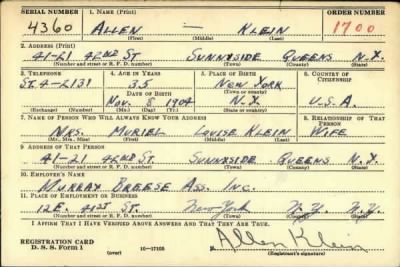 SERIAL NUMBER 1. NAME (Print) ORDER NUMBER
4360 ALLEN — KLEIN 1700
(First) (Middle) (Last)
2. ADDRESS (Print)
41-21 42ND ST. SUNNYSIDE QUEENS N.Y.
(Number and street or R. F. D. number) (Town) (County) (State)
3. TELEPHONE 4. AGE IN YEARS 5. PLACE OF BIRTH 6. COUNTRY OF CITIZENSHIP
ST. 4-2131 35 NEW YORK
DATE OF BIRTH (Town or county)
NOV. 8 1904 N.Y. U.S.A.
(Exchange) (Number) (Mo.) (Day) (Yr.) (State or country)
7. NAME OF PERSON WHO WILL ALWAYS KNOW YOUR ADDRESS 8. RELATIONSHIP OF THAT PERSON
MRS. MURIEL LOUISE KLEIN WIFE
(Mr., Mrs., Miss) (First) (Middle) (Last)
9. ADDRESS OF THAT PERSON
41-21 42ND ST. SUNNYSIDE QUEENS N.Y.
(Number and street or R. F. D. number) (Town) (County) (State)
10. EMPLOYER'S NAME
MURRAY BREESE ASS. INC.
11. PLACE OF EMPLOYMENT OR BUSINESS
12 E. 41ST ST. New York N.Y. N.Y.
(Number and street or R. F. D. number) (Town) (County) (State)
I AFFIRM THAT I HAVE VERIFIED ABOVE ANSWERS AND THAT THEY ARE TRUE.
REGISTRATION CARD
D. S. S. Form 1 (over) 16—17105 Allen Klein
(Registrant's signature)